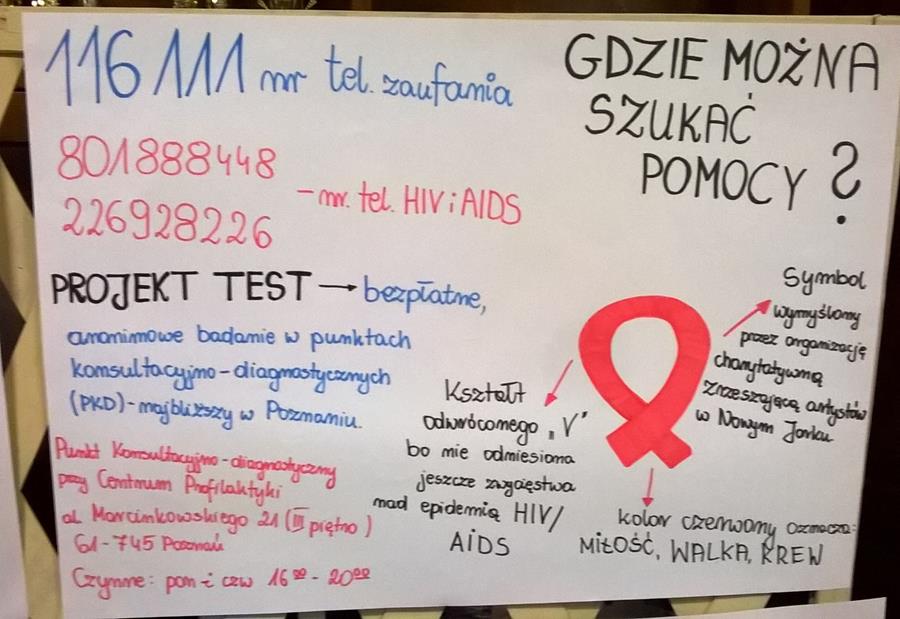 116 111 nr tel. zaufania
801888448
226928226
- nr. tel. HIV i AIDS
PROJEKT TEST → bezpłatne,
anonimowe badanie w punktach
konsultacyjno-diagnostycznych
(PKD)-najbliższy w Poznaniu.
Punkt Konsultacyjno-diagnostyczny
przy Centrum Profilaktyki
al. Marcinkowskiego 21 (III piętro)
61-745 Poznań
Czynne: pon i czw 16⁰⁰ - 20⁰⁰
GDZIE MOŻNA
SZUKAĆ
POMOCY ?
Symbol
wymyślony
przez organizację
charytatywną
zrzeszającą artystów
w Nowym Jorku
Kształt
odwróconego „V"
bo nie odniesiono
jeszcze zwycięstwa
nad epidemią HIV/
AIDS
kolor czerwony oznacza:
MIŁOŚĆ, WALKA, KREW